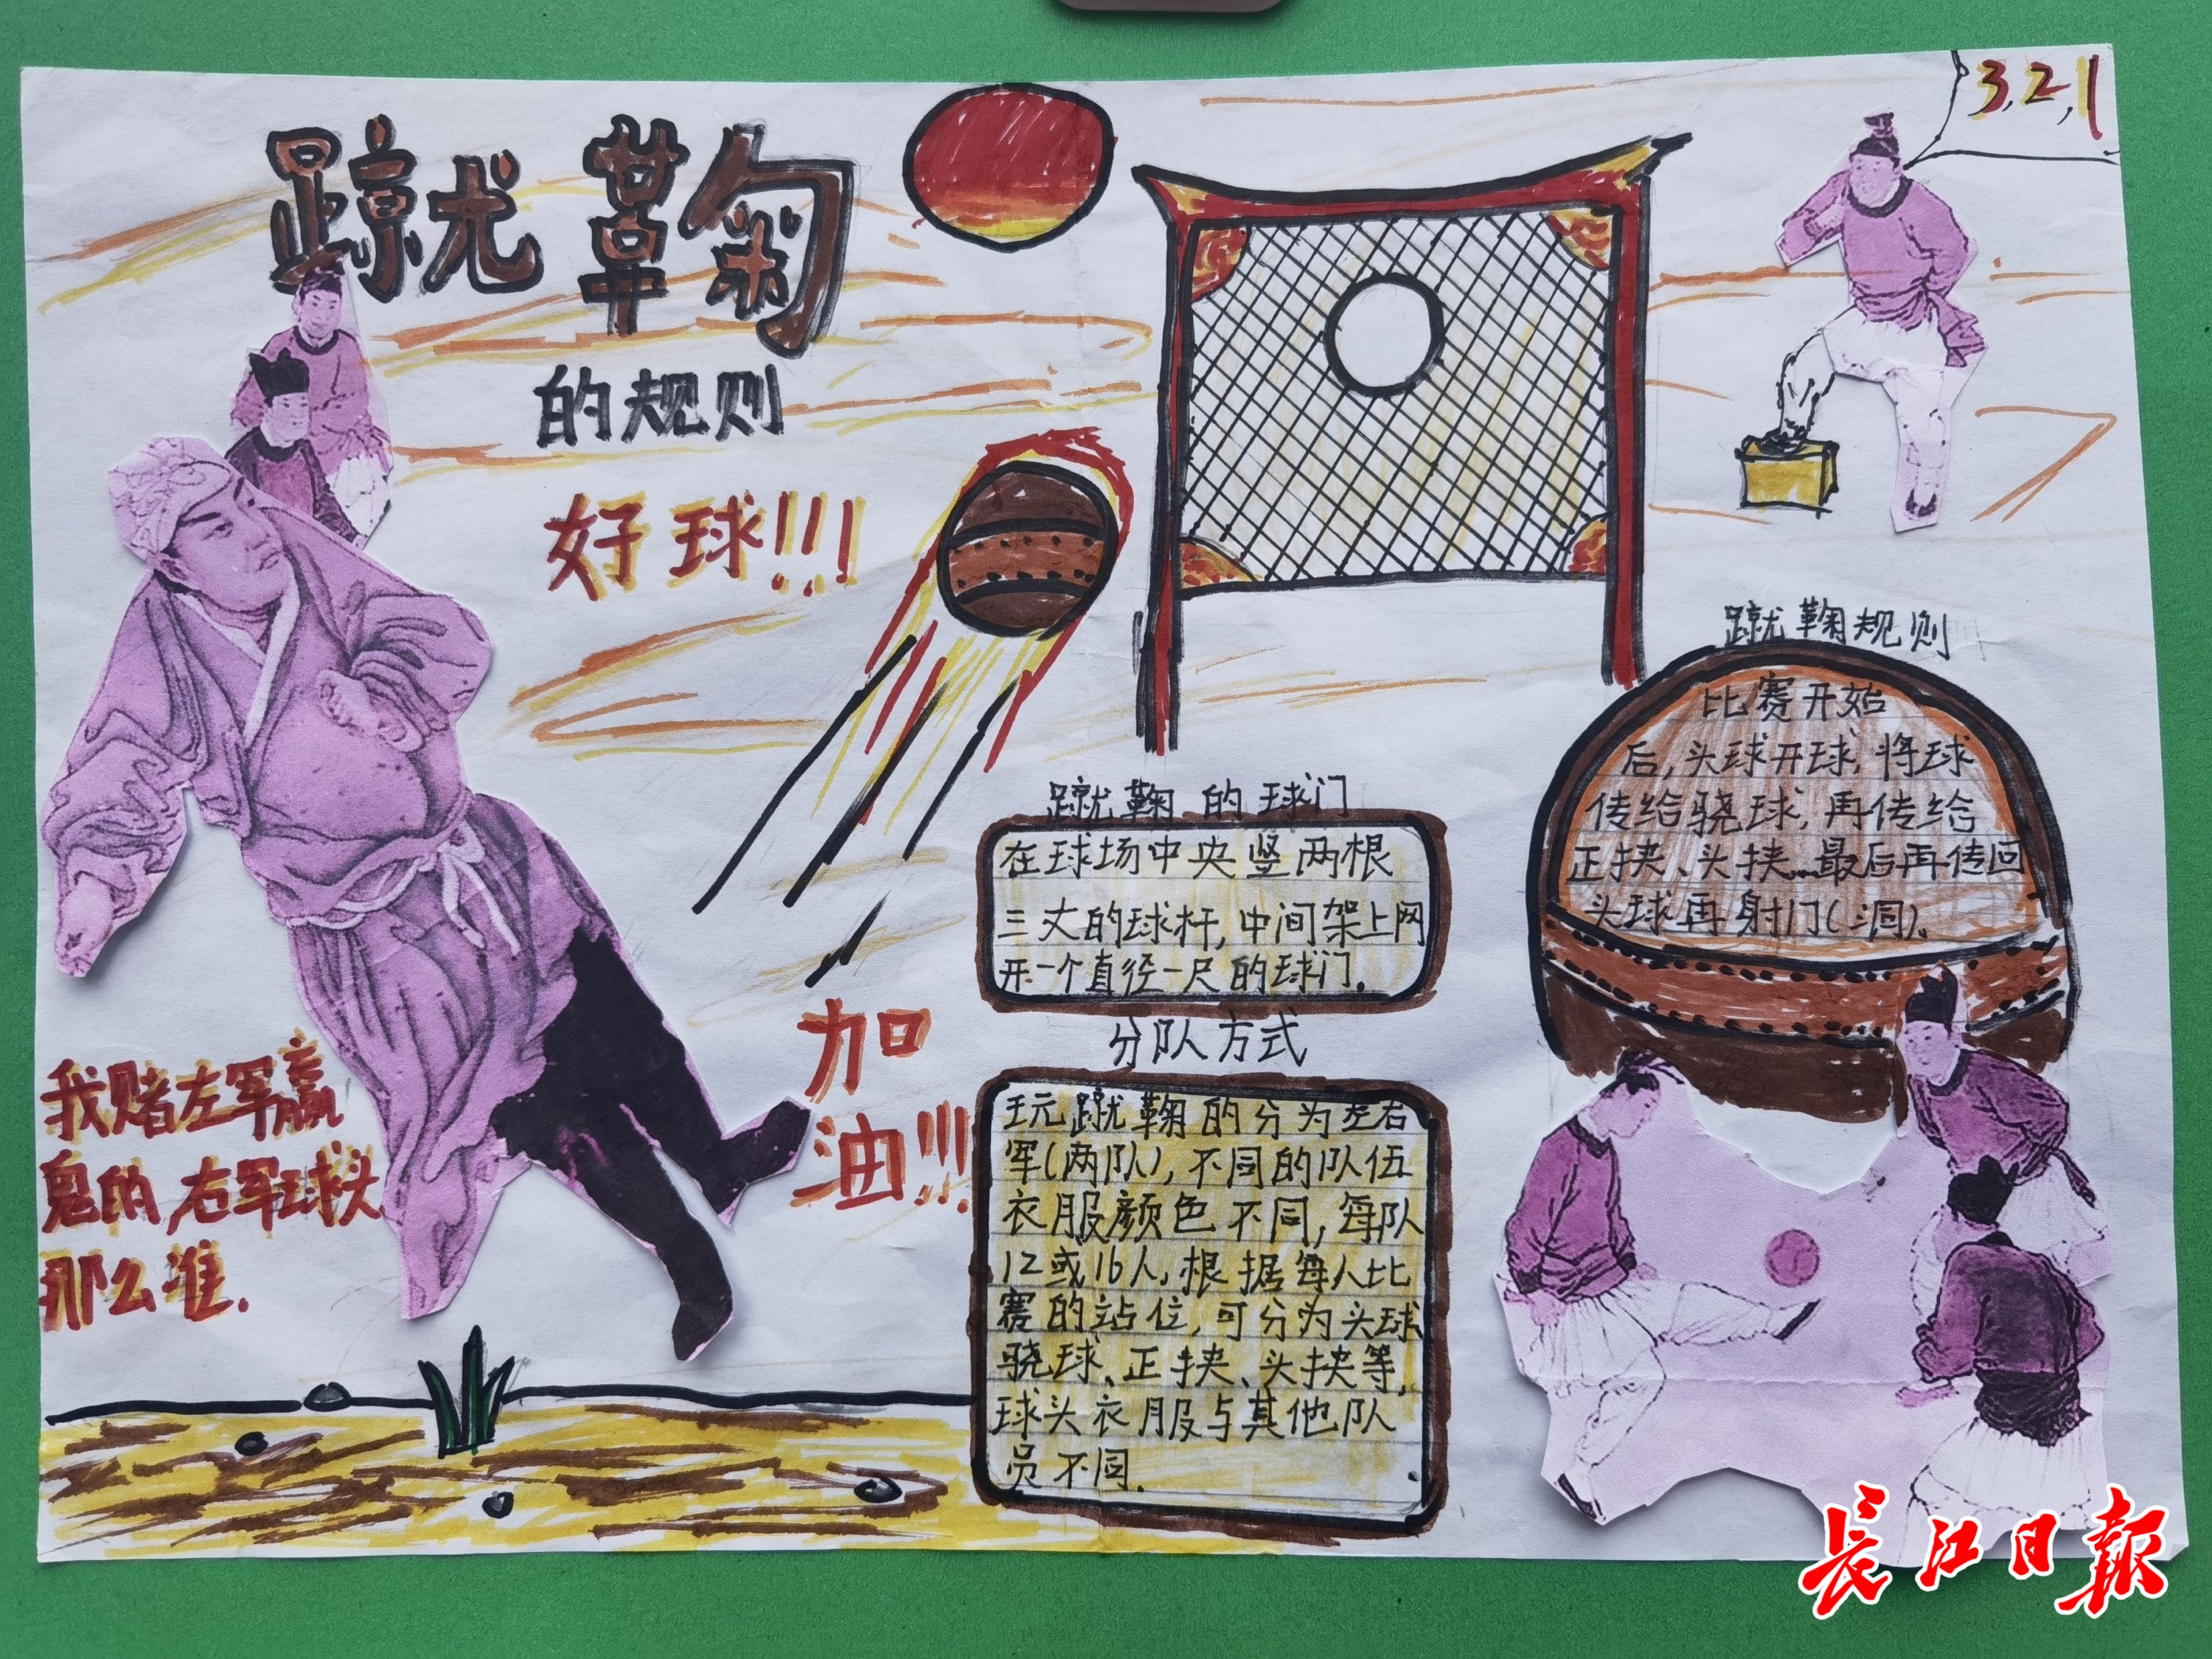 蹴鞠
的规则
好球!!!
3,2,1
加
油!!!
我赌左军赢
鬼的,右军球头
那么准.
蹴鞠的球门
在球场中央竖两根
三丈的球杆,中间架上网
开一个直径一尺的球门.
分队方式
玩蹴鞠的分为左右
军(两队),不同的队伍
衣服颜色不同,每队
12或16人,根据每人比
赛的站位,可分为头球
骁球、正挟、头挟等,
球头衣服与其他队
员不同.
蹴鞠规则
比赛开始
后,头球开球,将球
传给骁球,再传给
正挟、头挟...最后再传回
头球再射门(洞).
长江日报